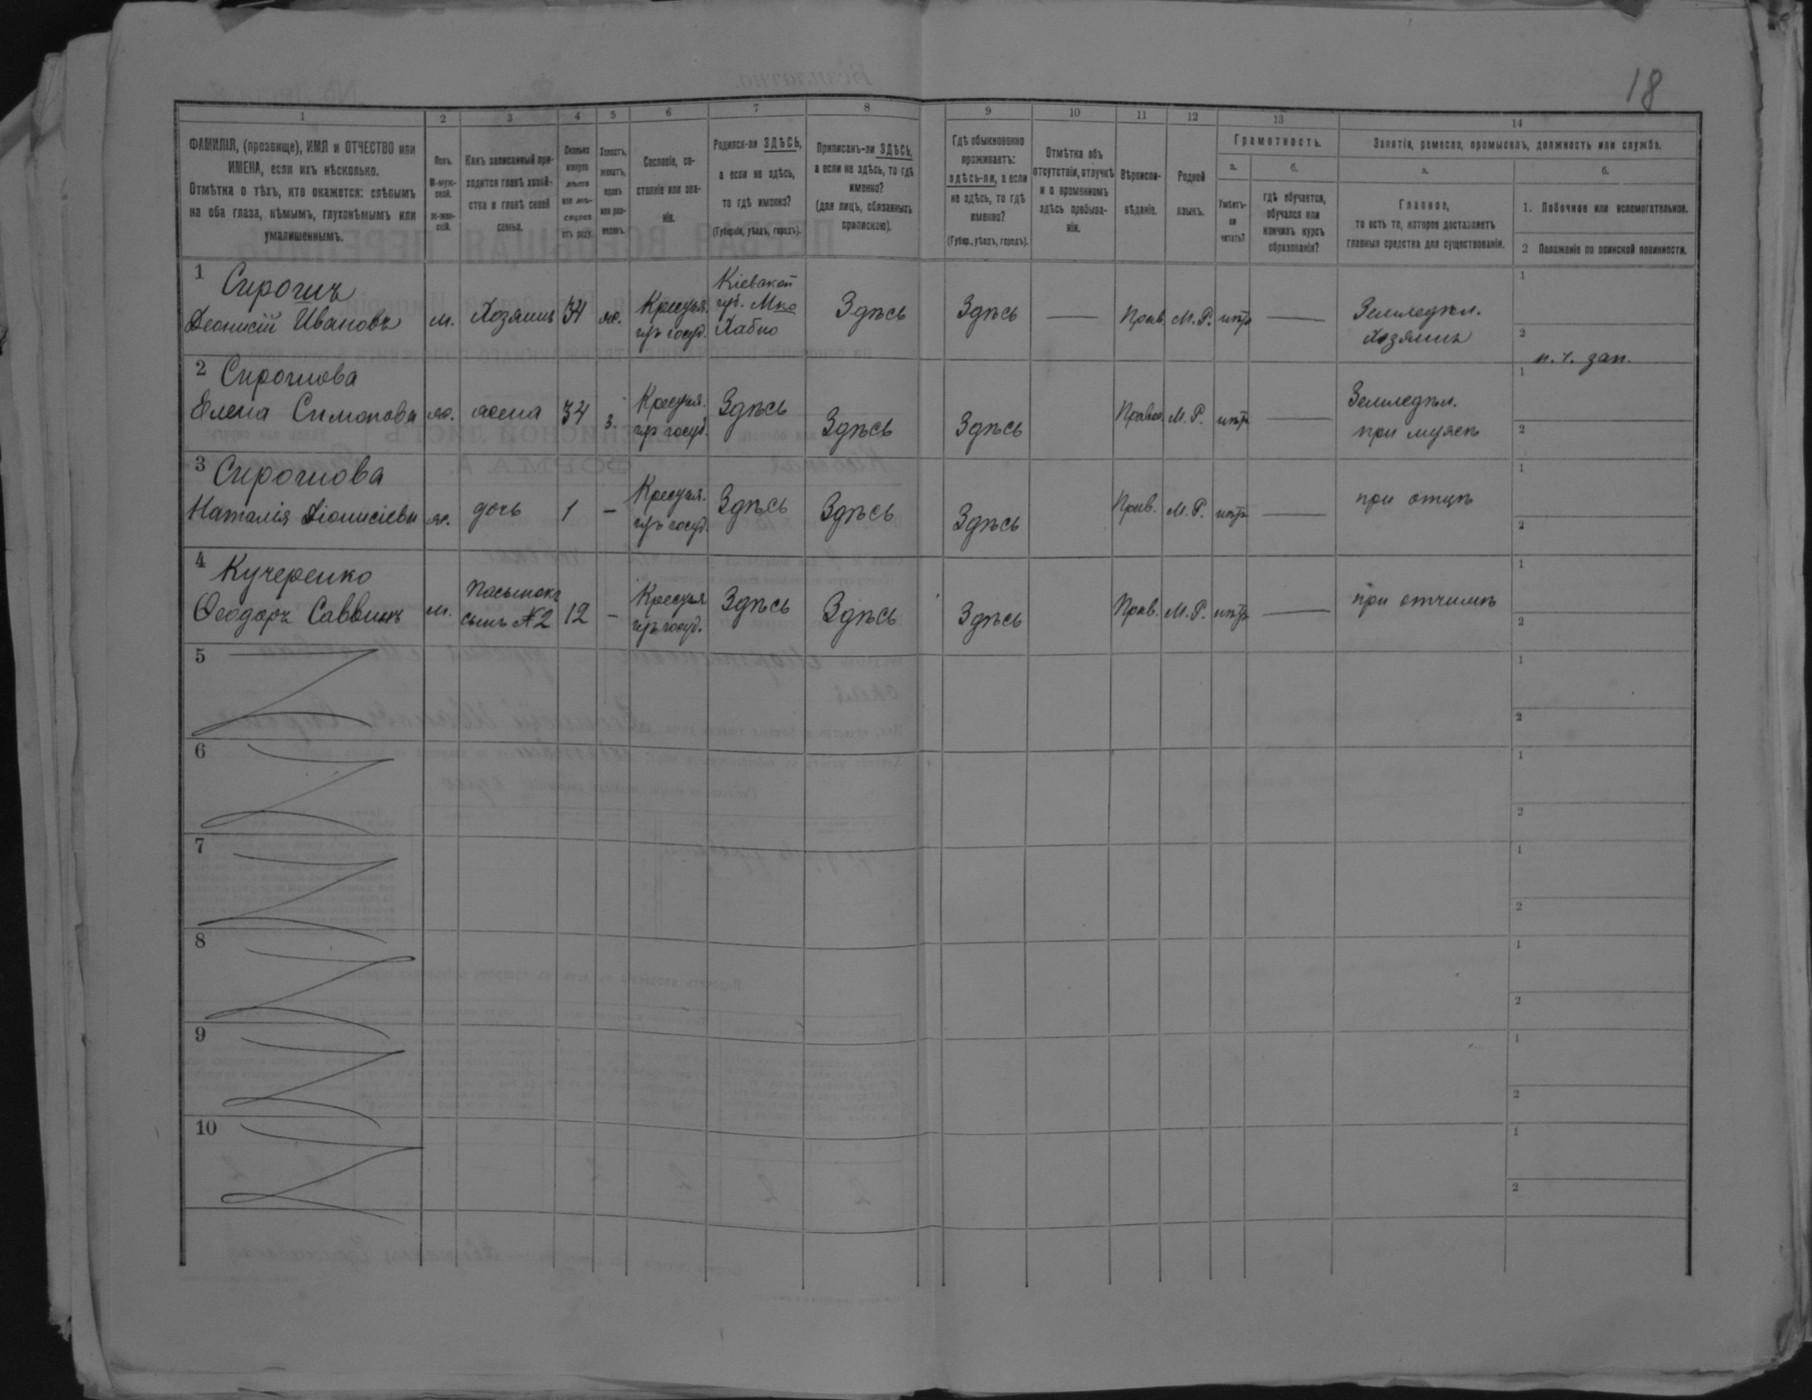 18
1 2 3 4 5 6 7 8 9 10 11 12 13 14
ФАМИЛІЯ, (прозвище), ИМЯ и ОТЧЕСТВО или
ИМЕНА, если ихъ нѣсколько.
Отмѣтка о тѣхъ, кто окажется: слѣпымъ
на оба глаза, нѣмымъ, глухонѣмымъ или
умалишеннымъ.
Полъ.
М-муж-
ской.
Ж-жен-
скій.
Какъ записанный при-
ходится главѣ хозяй-
ства и главѣ своей
семьи.
Сколько
минуло
лѣтъ
или мѣ-
сяцевъ
отъ роду.
Холостъ,
женатъ,
вдовъ
или раз-
веденъ.
Сословіе, со-
стояніе или зва-
ніе.
Родился-ли ЗДѢСЬ,
а если не здѣсь,
то гдѣ именно?
(Губернія, уѣздъ, городъ).
Приписанъ-ли ЗДѢСЬ,
а если не здѣсь, то гдѣ
именно?
(для лицъ, обязанныхъ
припискою).
Гдѣ обыкновенно
проживаетъ:
здѣсь-ли, а если
не здѣсь, то гдѣ
именно?
(Губер., уѣздъ, городъ).
Отмѣтка объ
отсутствіи, отлучкѣ
и о временномъ
здѣсь пребыва-
ніи.
Вѣроиспо-
вѣданіе.
Родной
языкъ.
Грамотность.
а.
Умѣетъ-
ли
читать?
б.
гдѣ обучается,
обучался или
кончилъ курсъ
образованія?
Занятіе, ремесло, промыселъ, должность или служба.
а.
Главное,
то есть то, которое доставляетъ
главныя средства для существованія.
б.
1. Побочное или вспомогательное.
2 Положеніе по воинской повинности.
1 Сирошъ
Деонисій Ивановъ м. Хозяинъ 34 ж. Крестья. Кіевской Здѣсь Здѣсь — Прав. М.Р. нѣтъ — Земледѣл. 1
губ.
Хабно Хозяинъ 2
н. ч. зап.
2 Сирошова
Елена Симонова ж. жена 34 з. Крестья. Здѣсь Здѣсь Здѣсь М.Р. нѣтъ — Земледѣл. 1
при мужѣ 2
3 Сирошова
Наталія Діонисіева ж. дочь 1 — Крестья. Здѣсь Здѣсь Здѣсь Прав. М.Р. нѣтъ — при отцѣ 1
2
4 Кучеренко
Ѳеодоръ Саввинъ м. Пасынокъ 12 — Крестья Здѣсь Здѣсь Здѣсь Прав. М.Р. нѣтъ — при отчимѣ 1
сынъ №2 2
5 1
2
6 1
2
7 1
2
8 1
2
9 1
2
10 1
2